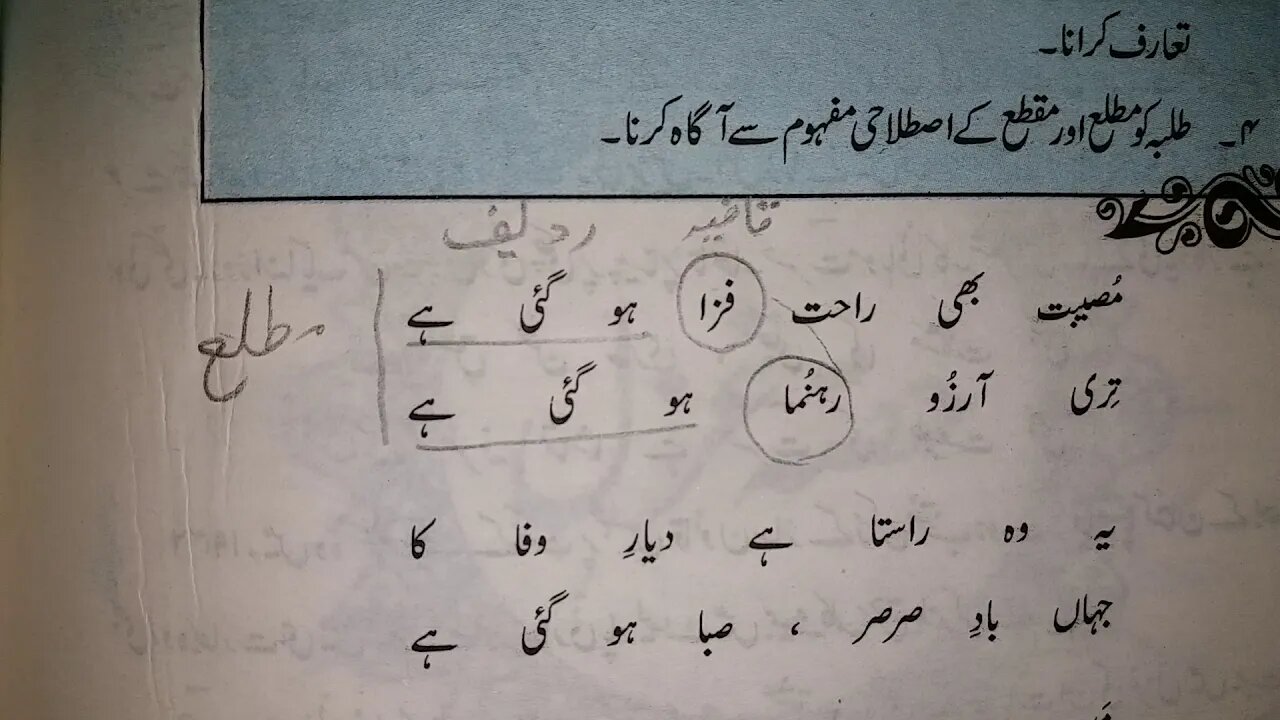 تعارف کرانا۔
۴۔ طلبہ کو مطلع اور مقطع کے اصطلاحی مفہوم سے آگاہ کرنا۔
قافیہ ردیف
مُصیبت بھی راحت فزا ہو گئی ہے
مطلع
تِری آرزُو رہنُما ہو گئی ہے
یہ وہ راستا ہے دیارِ وفا کا
جہاں بادِ صرصر ، صبا ہو گئی ہے